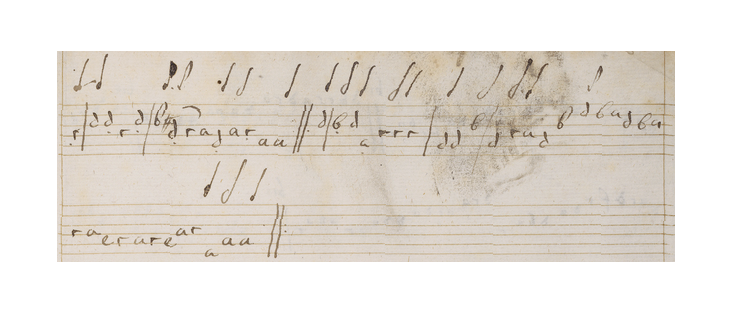 r d d r d b a d r a d a r a a d b d a r r r d d b d r a d b d b a d b a
r a e r a r e a r a a a